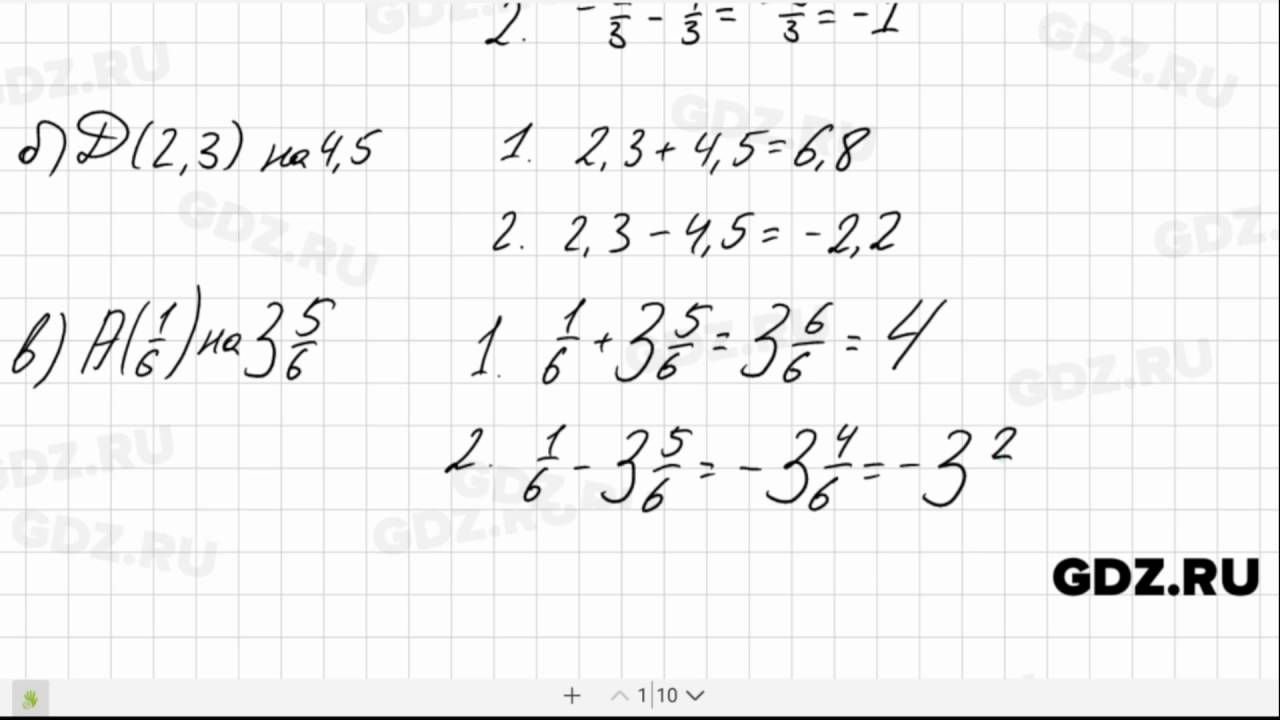 2. - /3 - 1/3 = - /3 = -1
б) D(2,3) на 4,5 1. 2,3 + 4,5 = 6,8
2. 2,3 - 4,5 = -2,2
в) A(1/6) на 3 5/6 1. 1/6 + 3 5/6 = 3 6/6 = 4
2. 1/6 - 3 5/6 = -3 4/6 = -3 2
GDZ.RU
1 | 10